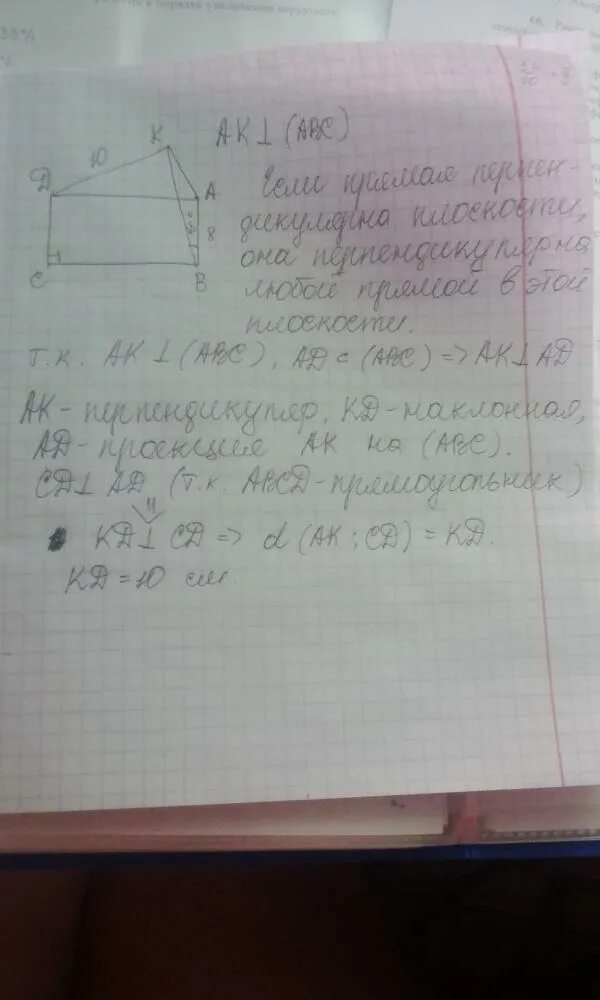 в порядке увеличения
66.
K
AK⊥(ABC)
10
D
A
8
C
B
Если прямая перпен-
дикулярна плоскости,
она перпендикулярна
любой прямой в этой
плоскости.
т.к. AK⊥(ABC), AD⊂(ABC)=>AK⊥AD
AK-перпендикуляр, KD-наклонная,
AD-проекция AK на (ABC).
CD⊥AD (т.к. ABCD-прямоугольник)
KD⊥CD=>d(AK;CD)=KD.
KD=10 см